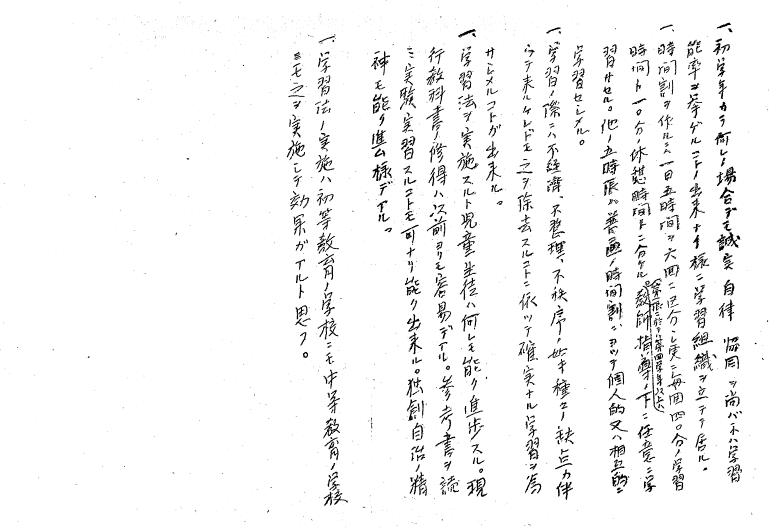 一、初学年カラ何レノ場合デモ誠実 自律 協同ヲ尚バネバ学習
能率ヲ挙ゲルコトノ出来ナイ様ニ学習組織ヲ立テテ居ル。
一、時間割ヲ作ルニハ一日五時間ヲ六回ニ区分シ更ニ毎回四〇分ノ学習
時間ト一〇分ノ休憩時間トニ分ケル 教師指導ノ下ニ任意ニ学
習サセル。他ノ五時限ハ普通ノ時間割ニヨッテ個人的又ハ相互的ニ
学習セシメル。
一、学習ノ際ニハ不経済、不整理、不秩序ノ如キ種々ノ缺点ガ伴
ウテ来ルケレドモ之ヲ除去スルコトニ依ッテ確実ナル学習ヲ為
サシメルコトガ出来ル。
一、学習法ヲ実施スルト児童生徒ハ何レモ能ク進歩スル。現
行教科書ノ修得ハ以前ヨリモ容易デアル。参考書ヲ読
ミ実験実習スルコトモ可ナリ能ク出来ル。独創自治ノ精
神モ能ク進ム様デアル。
一、学習法ノ実施ハ初等教育ノ学校ニモ中等教育ノ学校
ニモ之ヲ実施シテ効果ガアルト思フ。